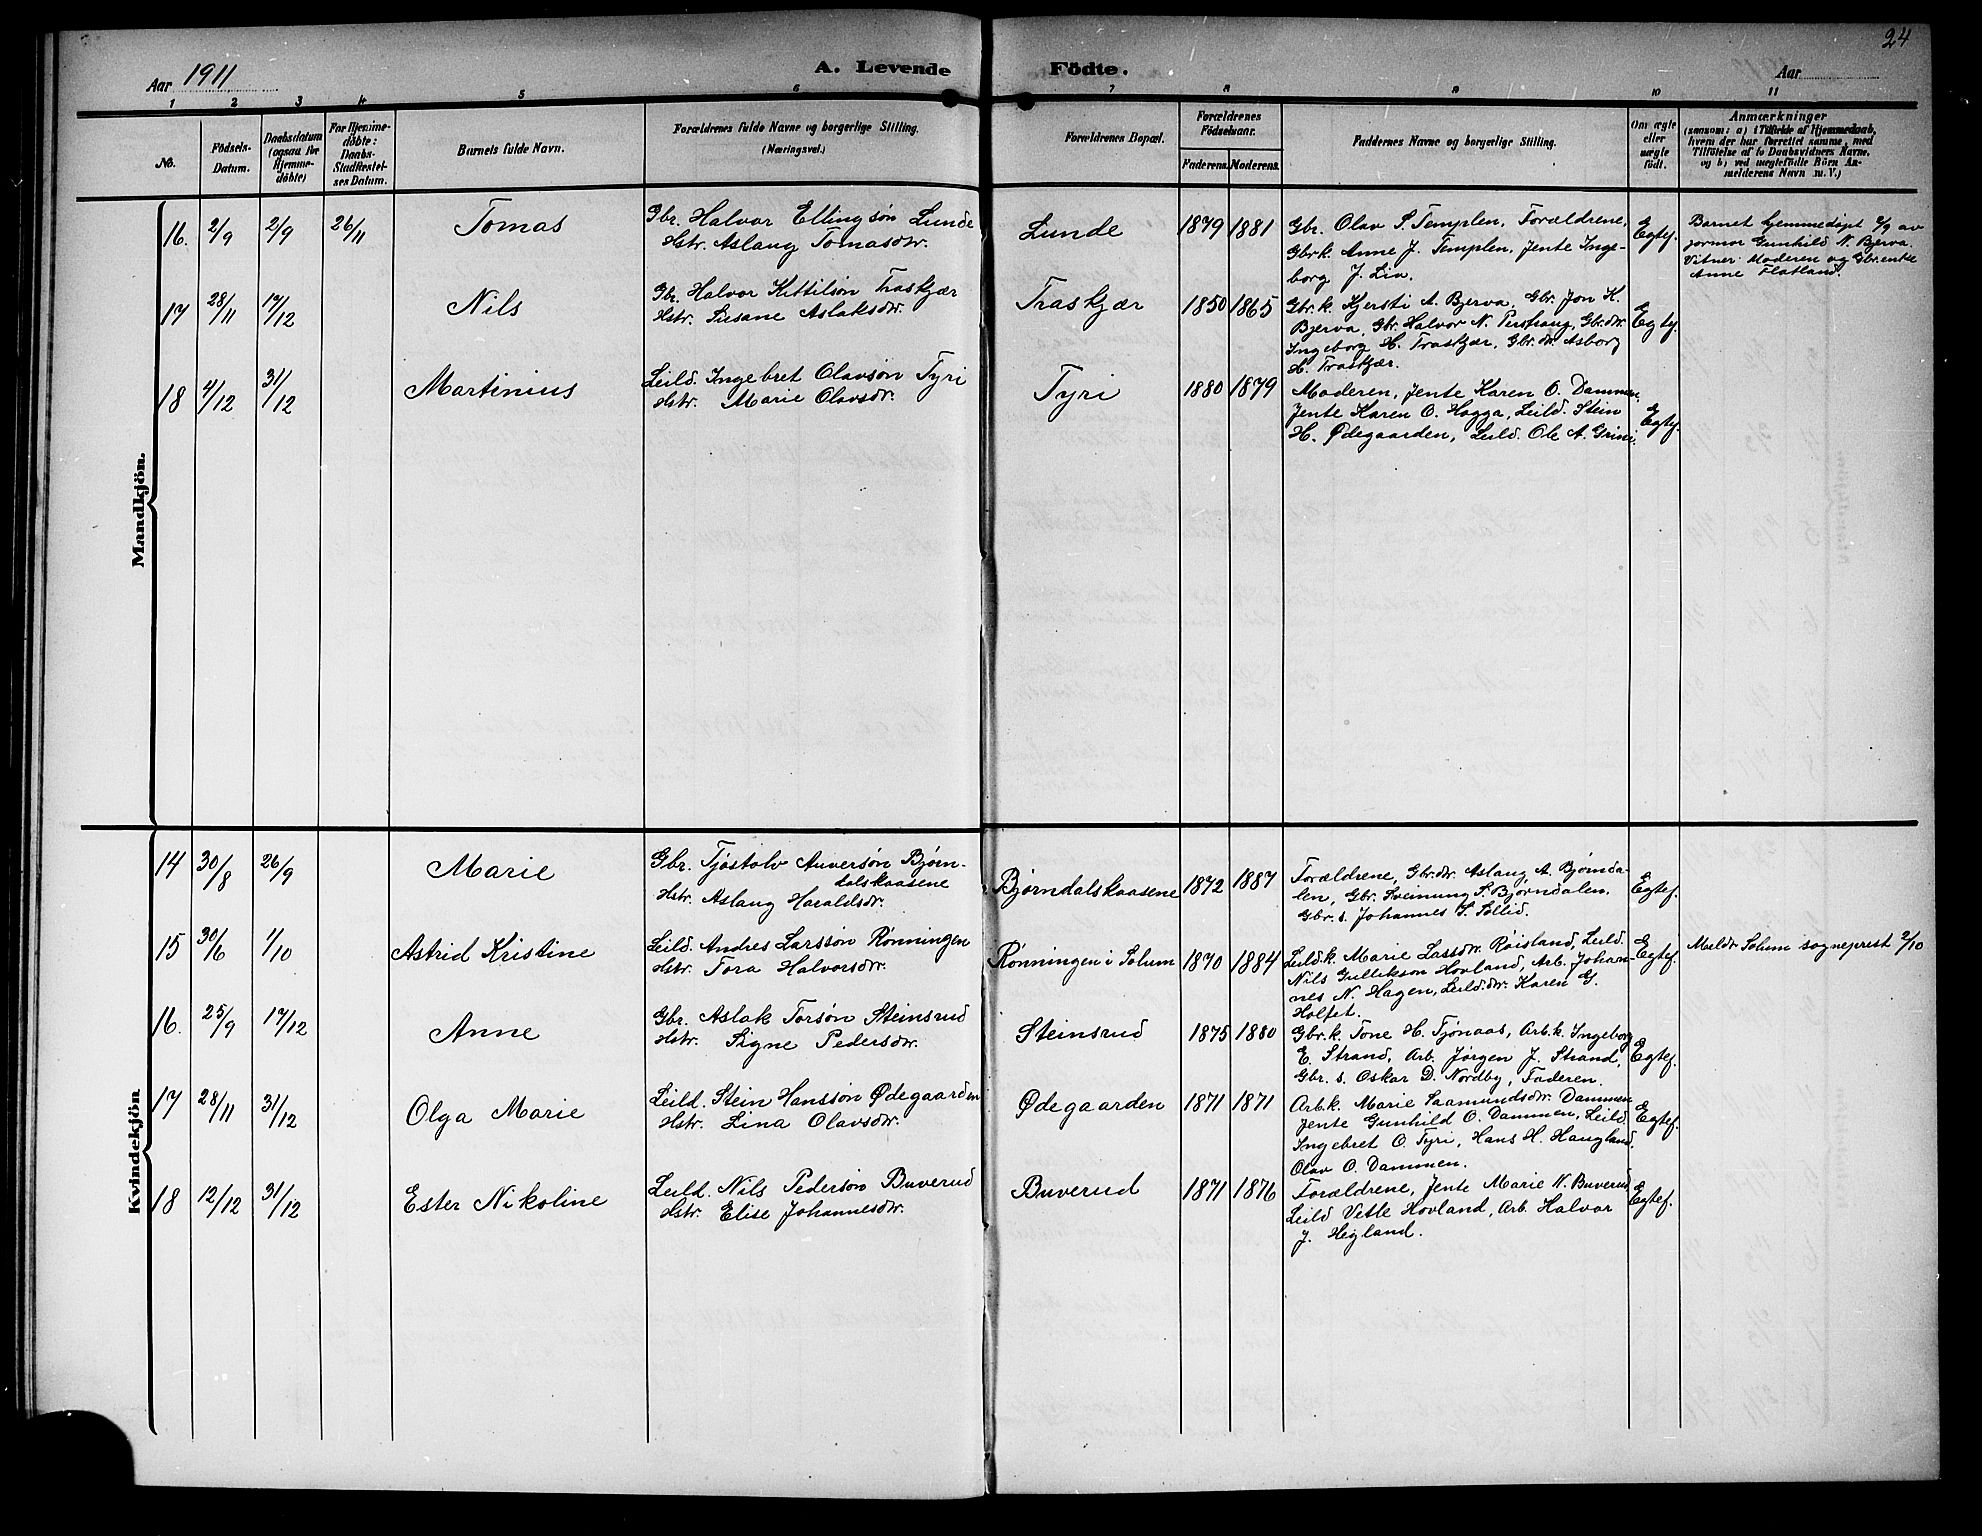 24
Aar 1911
A. Levende Födte.
Aar
1 2 3 4 5 6 7 8 9 10 11
No.
Födsels-
Datum.
Daabsdatum
(ogsaa for
Hjemme-
döbte)
For Hjemme-
döbte:
Daabs-
Stadfæstel-
ses Datum.
Barnets fulde Navn.
Forældrenes fulde Navne og borgerlige Stilling.
(Næringsvei.)
Forældrenes Bopæl.
Forældrenes
Födselsaar.
Faderens. Moderens.
Faddernes Navne og borgerlige Stilling.
Om ægte
eller
uægte
födt.
Anmærkninger
(saasom: a) i Tilfælde af Hjemmedaab,
hvem der har forrettet samme, med
Tilföielse af to Daabsvidners Navne,
og b) ved uægtefödte Börn An-
melderens Navn m. V.)
Mandkjön.
16. 2/9 2/9 26/11 Tomas
Gbr. Halvor Ellingsøn Lunde
Hstr. Aslaug Tomasdtr.
Lunde 1879 1881
Gbr. Olav S. Templen, Forældrene,
Gbrk. Anne J. Templen, Jente Inge-
borg J. Lia.
Egtef.
Barnet hjemmedøpt 2/9 av
jormor Gunhild N. Bjerva.
Vitner: Moderen og Gbr.enke
Anne Flatland.
17 28/11 17/12 Nils
Gbr. Halvor Kittilsøn Traskjær
Hstr. Susane Aslaksdtr.
Traskjær 1850 1865
Gbr.k. Kjersti A. Bjerva, Gbr. Jon K.
Bjerva, Gbr. Halvor N. Perstraug, Gbr.dtr.
Ingeborg H. Traskjær, Gbr.dtr. Asborg
H. Traskjær.
Egtef.
18 4/12 31/12 Martinius
Leild. Ingebret Olavsøn Tyri
Hstr. Marie Olavsdtr.
Tyri 1880 1879
Moderen, Jente Karen O. Dammen,
Jente Karen O. Hogga, Leild. Stein
H. Ødegaarden, Leild. Ole A. Grini.
Egtef.
Kvindekjön
14 30/8 26/9 Marie
Gbr. Tjøstolv Auversøn Bjørn-
dalskaasene
Hstr. Aslaug Haraldsdtr.
Bjørndalskaasene 1872 1887
Forældrene, Gbr.dtr. Aslaug A. Bjørnda-
len, Gbr. Sveinung S. Bjørndalen.
Gbr. s. Johannes S. Sollid.
Egtef.
15 30/6 1/10 Astrid Kristine
Leild. Andres Larssøn Rønningen
Hstr. Tora Halvorsdtr.
Rønningen i Solum 1870 1884
Leild.k. Marie Lassdtr. Røisland, Leild.
Nils Gullikson Hovland, Arb. Johan-
nes N. Hagen, Leild.dtr. Karen G.
Holtet.
Egtef.
Meldt Solum sogneprest 2/10
16. 25/9 17/12 Anne
Gbr. Aslak Torsøn Steinsrud
Hstr. Signe Pedersdtr.
Steinsrud 1875 1880
Gbr.k. Tone H. Tjønaas, Arb.k. Ingeborg
E. Strand, Arb. Jørgen J. Strand,
Gbr. s. Oskar D. Nordby, Faderen.
Egtef.
17 28/11 31/12 Olga Marie
Leild. Stein Hanssøn Ødegaarden
Hstr. Lina Olavsdtr.
Ødegaarden 1871 1871
Arb.k. Marie Saamundsdtr. Dammen
Jente Gunhild O. Dammen, Leild.
Ingebret O. Tyri, Hans H. Haugland.
Olav O. Dammen.
Egtef.
18 12/12 31/12 Ester Nikoline
Leild. Nils Pedersøn Buverud
Hstr. Elise Johannesdtr.
Buverud 1871 1876
Forældrene, Jente Marie N. Buverud
Leild Vetle Hovland, Arb. Halvor
J. Hegland.
Egtef.